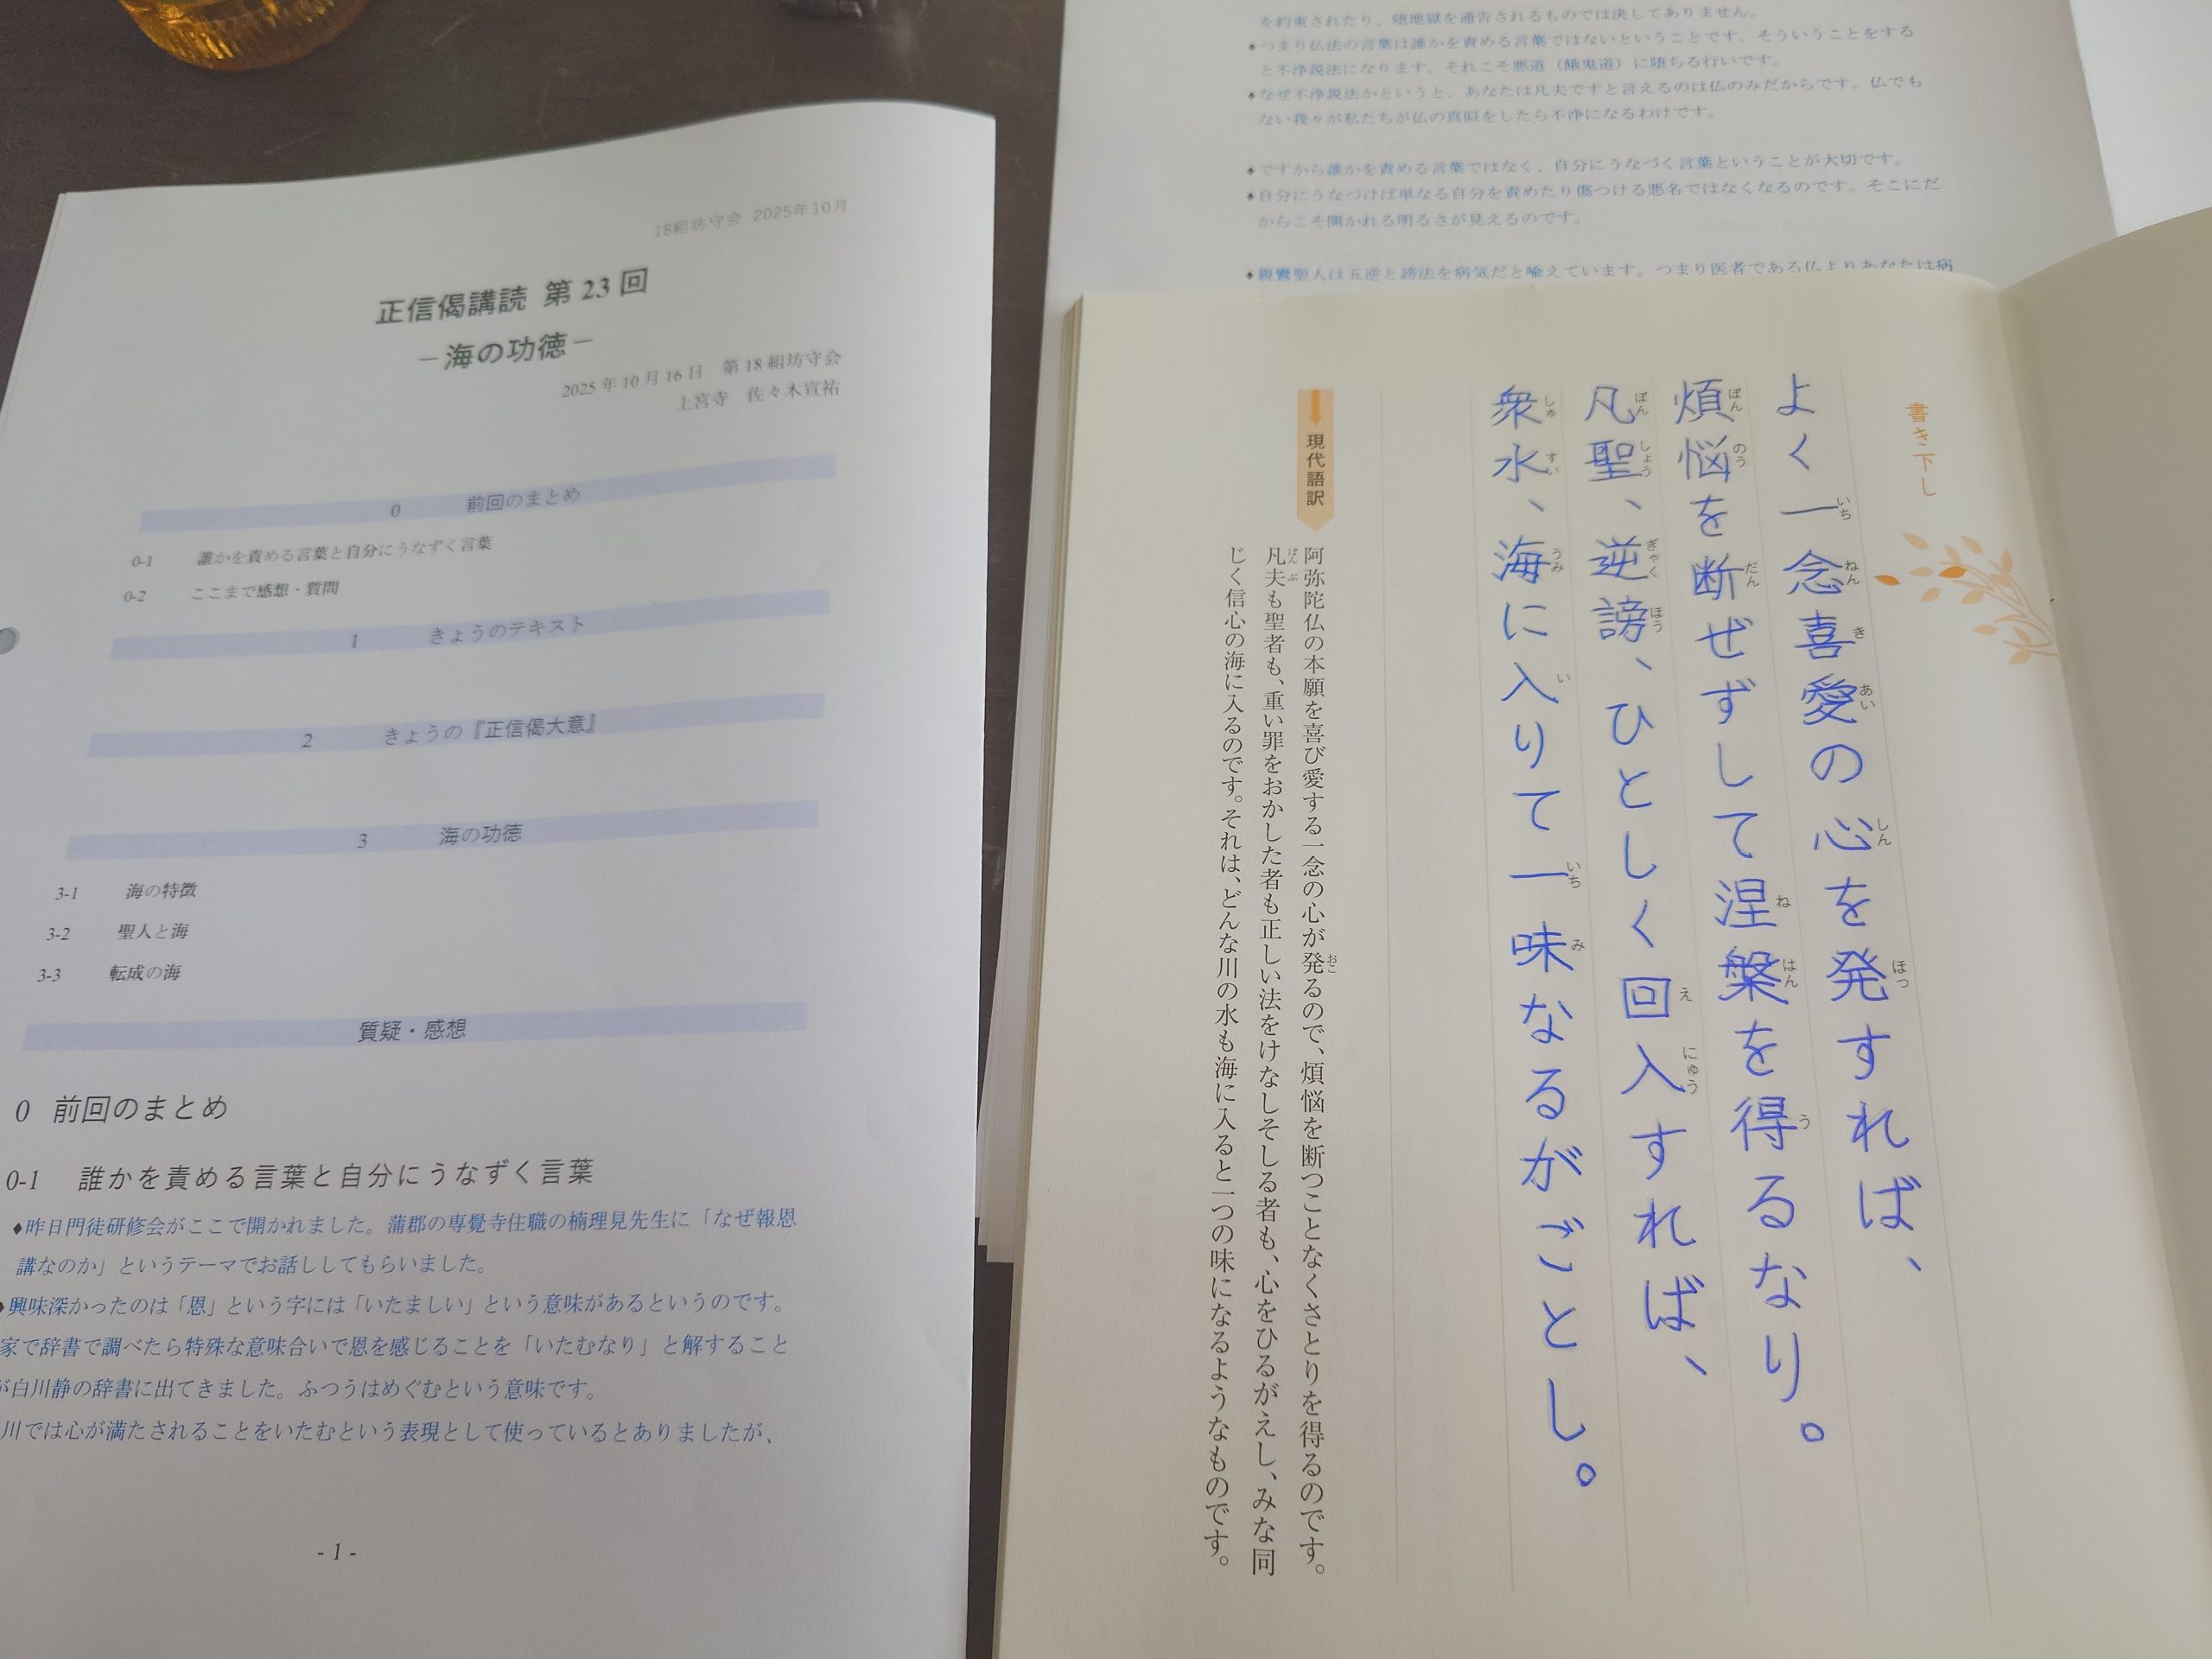 18組坊守会 2025年10月
正信偈講読 第23回
－海の功徳－
2025年10月16日 第18組坊守会
上宮寺 佐々木宣祐
0 前回のまとめ
0-1 誰かを責める言葉と自分にうなずく言葉
0-2 ここまで感想・質問
1 きょうのテキスト
2 きょうの『正信偈大意』
3 海の功徳
3-1 海の特徴
3-2 聖人と海
3-3 転成の海
質疑・感想
0 前回のまとめ
0-1 誰かを責める言葉と自分にうなずく言葉
♦昨日門徒研修会がここで開かれました。蒲郡の専覺寺住職の楠理見先生に「なぜ報恩
講なのか」というテーマでお話ししてもらいました。
♦興味深かったのは「恩」という字には「いたましい」という意味があるというのです。
家で辞書で調べたら特殊な意味合いで恩を感じることを「いたむなり」と解すること
が白川静の辞書に出てきました。ふつうはめぐむという意味です。
川では心が満たされることをいたむという表現として使っているとありましたが、
- 1 -
を約束されたり、堕地獄を通告されるものでは決してありません。
♦つまり仏法の言葉は誰かを責める言葉ではないということです。そういうことをする
と不浄説法になります。それこそ悪道（餓鬼道）に堕ちる行いです。
♦なぜ不浄説法かというと、あなたは凡夫ですと言えるのは仏のみだからです。仏でも
ない我々が私たちが仏の真似をしたら不浄になるわけです。
♦ですから誰かを責める言葉ではなく、自分にうなづく言葉ということが大切です。
♦自分にうなづけば単なる自分を責めたり傷つける悪名ではなくなるのです。そこにだ
からこそ開かれる明るさが見えるのです。
♦親鸞聖人は五逆と謗法を病気だと喩えています。つまり医者である仏よりあなたは病
書き下し
よく一念喜愛の心を発すれば、
いちねんきあいしんほつ
煩悩を断ぜずして涅槃を得るなり。
ぼんのうだんねはんう
凡聖、逆謗、ひとしく回入すれば、
ぼんしょうぎゃくほうえにゅう
衆水、海に入りて一味なるがごとし。
しゅすいうみいいちみ
現代語訳
阿弥陀仏の本願を喜び愛する一念の心が発るので、煩悩を断つことなくさとりを得るのです。
おこ
凡夫も聖者も、重い罪をおかした者も正しい法をけなしそしる者も、心をひるがえし、みな同
ぼんぶ
じく信心の海に入るのです。それは、どんな川の水も海に入ると一つの味になるようなものです。